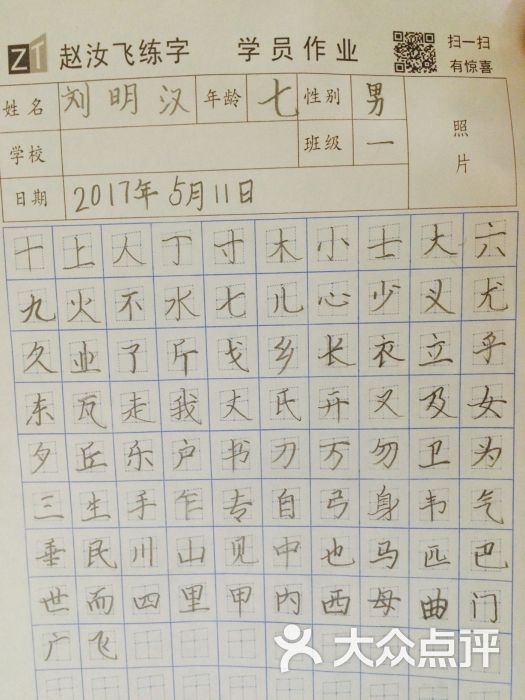 ZT 赵汝飞练字 学员作业 扫一扫
有惊喜
姓名 刘明汉 年龄 七 性别 男 照片
学校 班级 一
日期 2017年5月11日
十上人丁寸木小士大六
九火不水七儿心少义尤
久业了斤戈乡长衣立乎
东瓦走我丈氏开又及女
夕丘乐户书刀万勿卫为
三生手乍专自弓身韦气
垂民川山见中也马匹巴
世而四里甲内西母曲门
广飞
大众点评